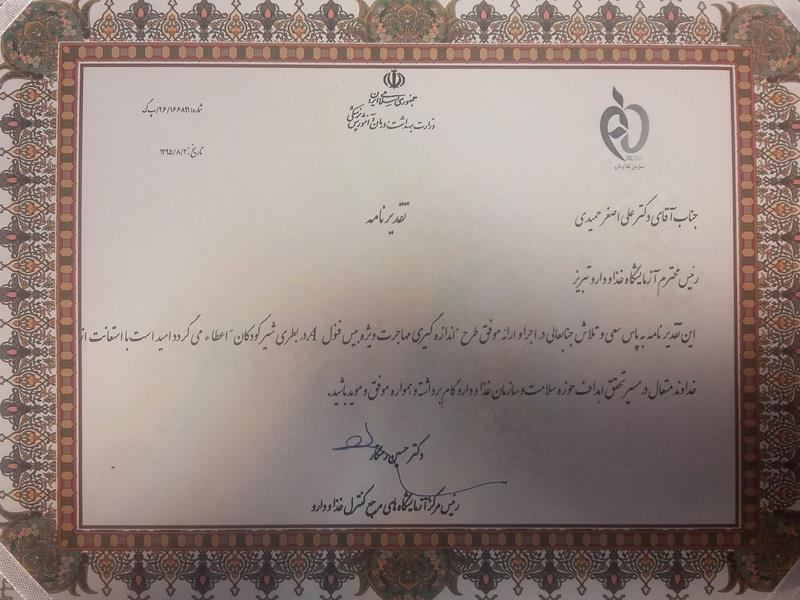 جمهوری اسلامی ایران
وزارت بهداشت، درمان و آموزش پزشکی
شماره: ۲۶/۱۶۶۸۲۱/پ ک
تاریخ: ۱۳۹۵/۸/۲
سازمان غذا و دارو
تقدیرنامه
جناب آقای دکتر علی اصغر حمیدی
رئیس محترم آزمایشگاه غذا و دارو تبریز
این تقدیرنامه به پاس سعی و تلاش جنابعالی در اجرا و ارائه موفق طرح "اندازه گیری مهاجرت ویژه بیس فنول A در بطری شیر کودکان" اعطاء می گردد امید است با استعانت از
خداوند متعال در مسیر تحقق اهداف حوزه سلامت و سازمان غذا و دارو گام برداشته و همواره موفق و موید باشید.
دکتر حسین رستگار
رئیس مرکز آزمایشگاه های مرجع کنترل غذا و دارو